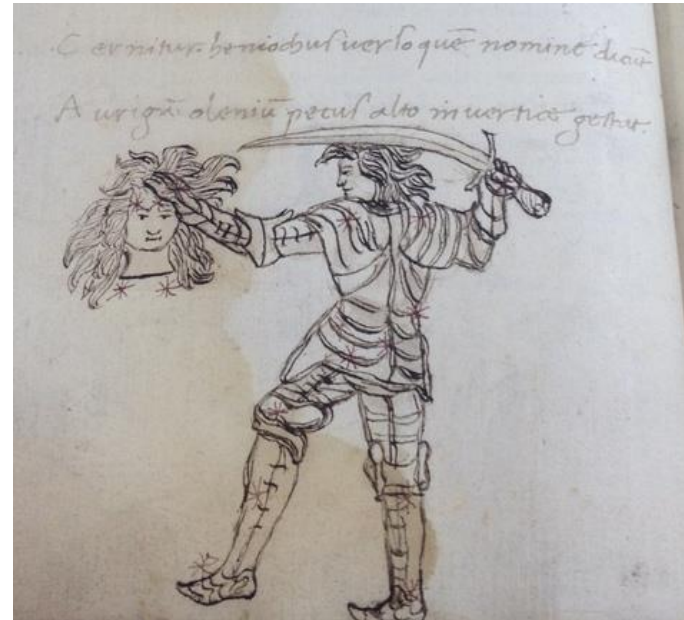 Cernitur heniochus uerso quē nomine dicūt
Aurigā: oleniū pecus alto in uertice gestat.